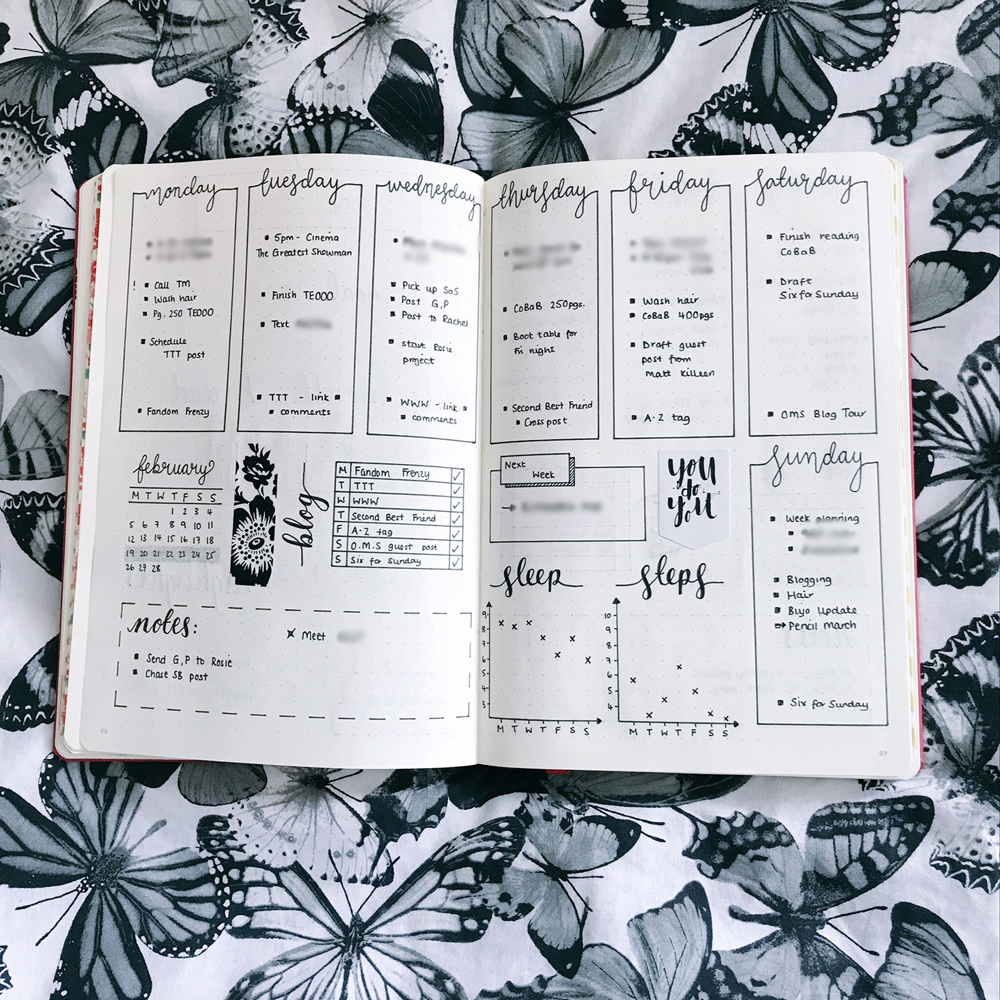 monday
! ▪ Call TM
▪ Wash hair
▪ Pg. 250 TEOOO
▪ Schedule
TTT post
▪ Fandom Frenzy
tuesday
▪ 5pm - Cinema
The Greatest Showman
▪ Finish TEOOO
▪ Text
▪ TTT - link ▪
▪ comments
wednesday
▪ Pick up SoS
▪ Post G,P
▪ Post to Rachel
▪ Start Rosie
project
▪ WWW - link ▪
▪ comments
thursday
▪ CoBaB 250pgs.
▪ Book table for
Fri night
▪ Second Best Friend
▪ Cross post
friday
▪ Wash hair
▪ CoBaB 400pgs
▪ Draft guest
post from
Matt Killeen
▪ A-Z tag
saturday
▪ Finish reading
CoBaB
▪ Draft
Six for Sunday
▪ OMS Blog Tour
february
M T W T F S S
1 2 3 4
5 6 7 8 9 10 11
12 13 14 15 16 17 18
19 20 21 22 23 24 25
26 27 28
blog
M Fandom Frenzy ✓
T TTT ✓
W WWW ✓
T Second Best Friend ✓
F A-Z tag ✓
S O.M.S guest post ✓
S Six for Sunday ✓
notes:
▪ Send G,P to Rosie
▪ Chase SB post
x Meet
48
Next
Week
you
do
you
sleep
9
8
7
6
5
4
3
M T W T F S S
steps
10
9
8
7
6
5
4
3
M T W T F S S
sunday
▪ Week planning
▪ Blogging
▪ Hair
▪ Bujo Update
Pencil March
▪ Six for Sunday
49